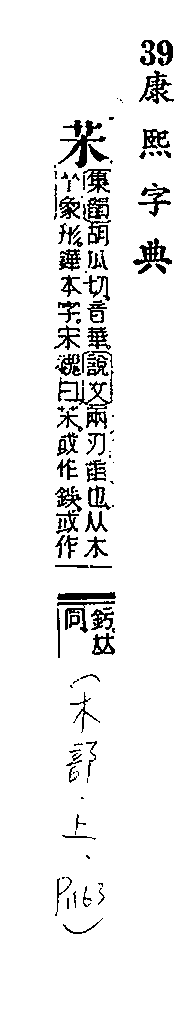 39
康熙字典
枼
集韻胡瓜切音華說文兩刃臿也从木
丫象形鏵本字宋魏曰枼或作鋘或作
釫𦭝
同
(木部.上、P.1163)